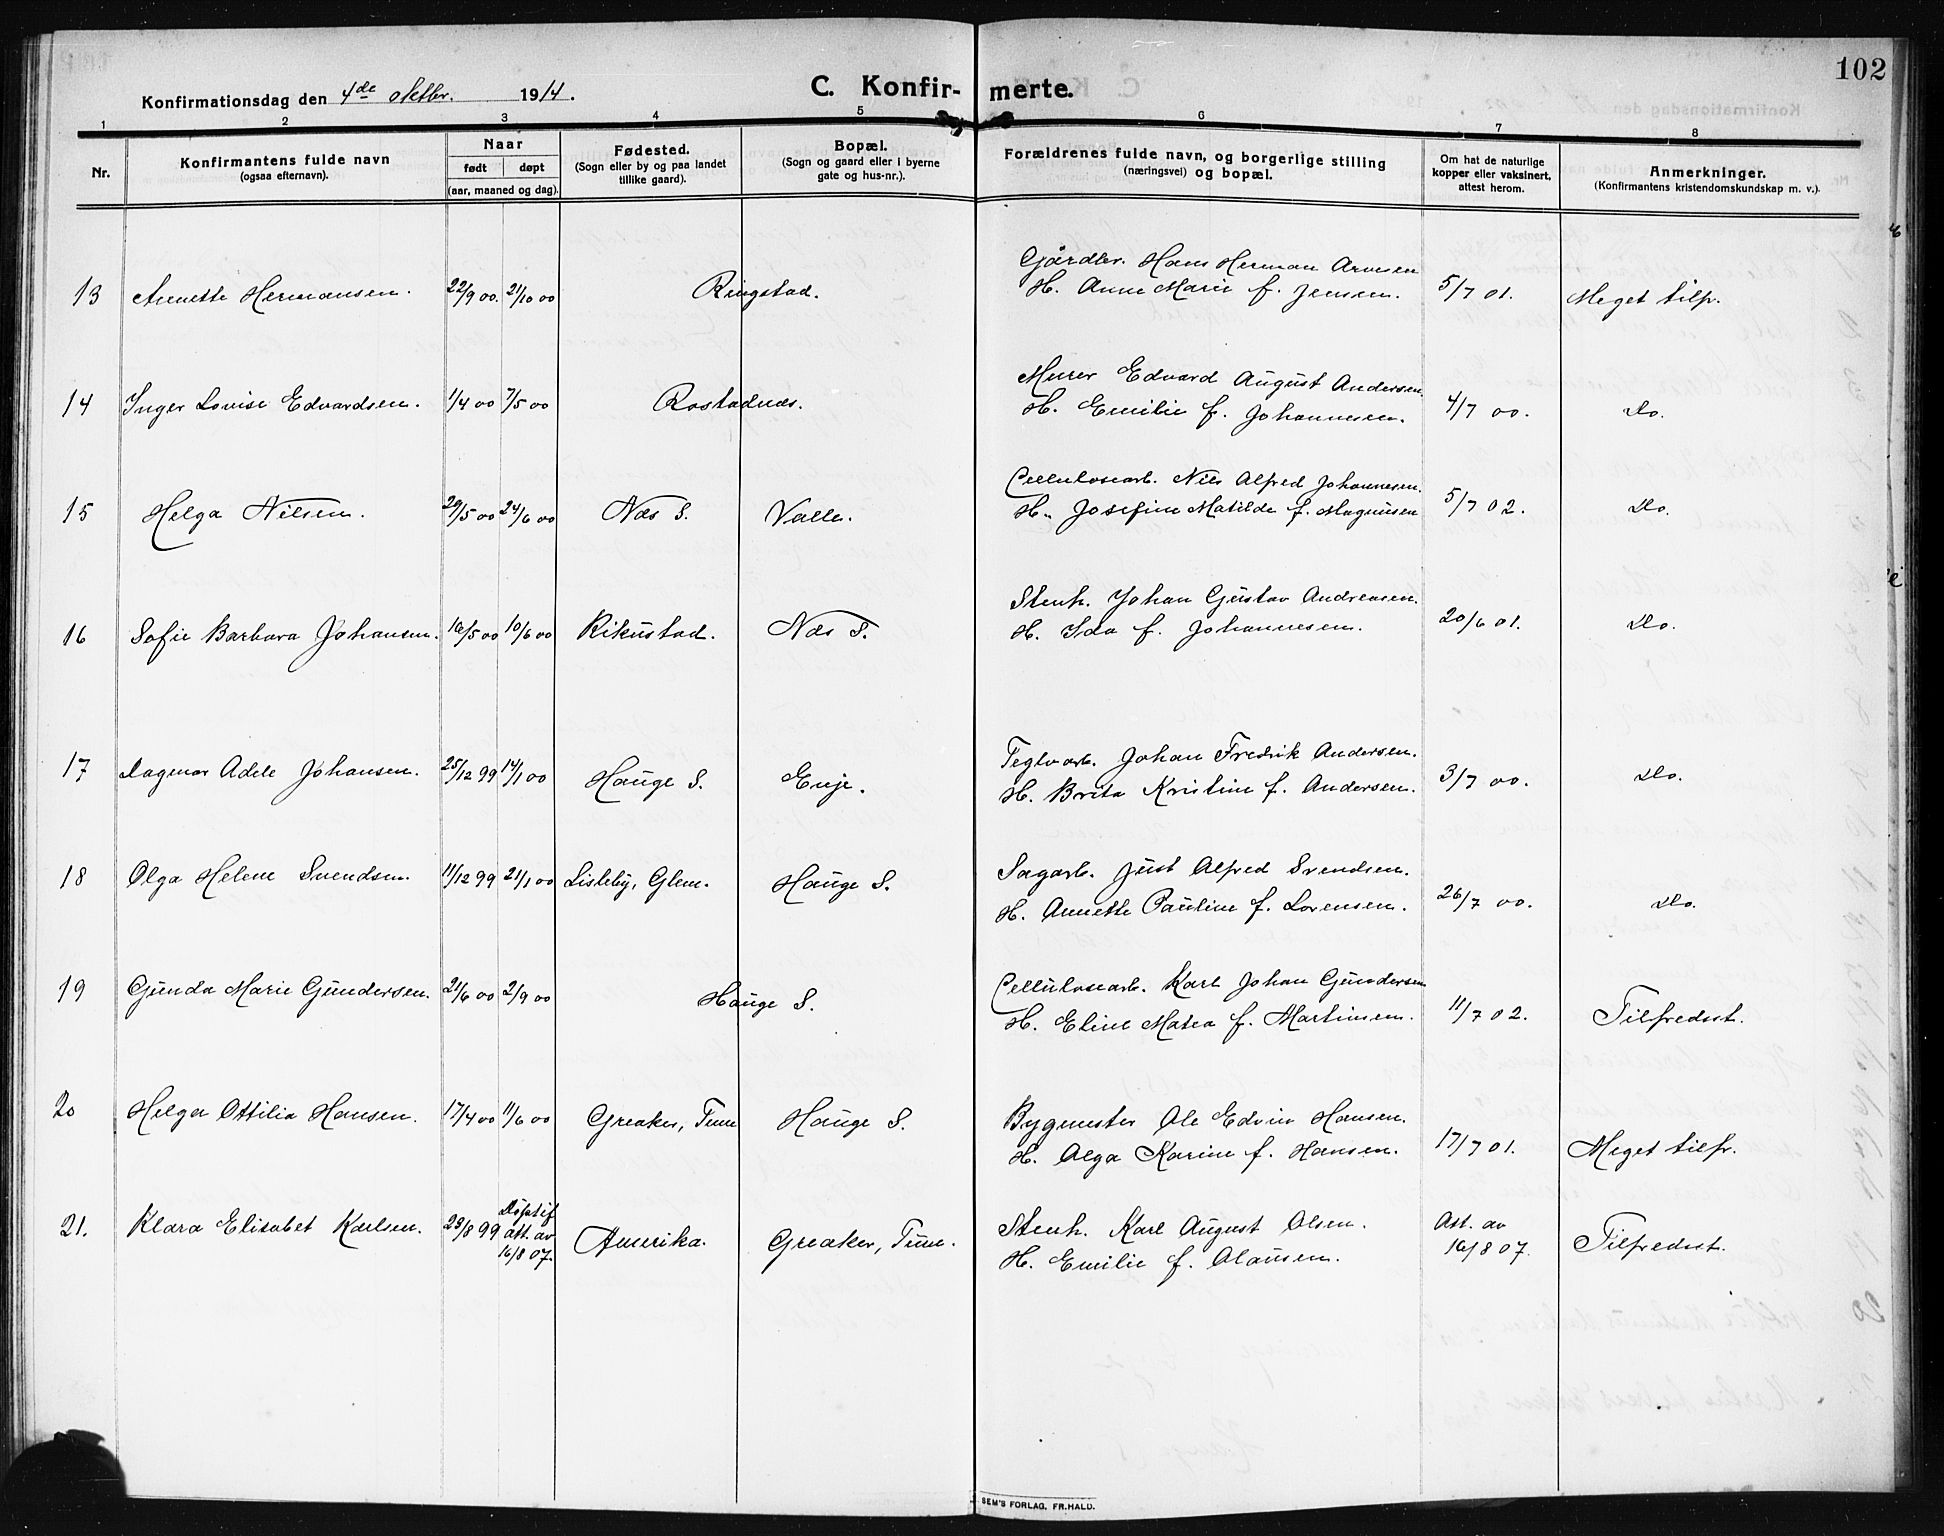 102
Konfirmationsdag den 4de oktbr. 1914.
C. Konfir- merte.
1 2 3 4 5 6 7 8
Nr.
Konfirmantens fulde navn
(ogsaa efternavn).
Naar
født døpt
(aar, maaned og dag).
Fødested.
(Sogn eller by og paa landet
tillike gaard).
Bopæl.
(Sogn og gaard eller i byerne
gate og hus-nr.).
Forældrenes fulde navn, og borgerlige stilling
(næringsvei) og bopæl.
Om hat de naturlige
kopper eller vaksinert,
attest herom.
Anmerkninger.
(Konfirmantens kristendomskundskap m. v.).
Gårdbr. Hans Herman Arnesen
13 Annette Hermansen. 22/9 00. 21/10 00 Ringstad. H. Anne Marie f. Jensen. 5/7 01. Meget tilfr.
Murer Edvard August Andersen
14 Inger Lovise Edvardsen. 1/4 00 7/5 00 Rostadnæs. H. Emilie f. Johannesen. 4/7 00. Do.
Cellulosearb. Nils Alfred Johannesen.
15 Helga Nilsen. 29/5 00 24/6 00 Næs S. Valle. H. Josefine Matilde f. Magnusen 5/7 02. Do.
Stenh. Johan Gustav Andreasen.
16 Sofie Barbara Johansen. 16/5 00 10/6 00 Rikustad. Næs S. H. Ida f. Johannesen. 20/6 01. Do.
Teglvarb. Johan Fredrik Andersen.
17 Dagmar Adele Johansen. 25/12 99 14/1 00 Hauge S. Enje. H. Brita Kristine f. Andersen. 3/7 00. Do.
Sagarb. Just Alfred Svendsen.
18 Olga Helene Svendsen. 11/12 99 21/1 00 Lisleby, Glem. Hauge S. H. Annette Pauline f. Lorensen. 26/7 00. Do.
Cellulosearb. Karl Johan Gundersen
19 Gunda Marie Gundersen. 21/6 00 2/9 00 Hauge S. H. Eline Matea f. Martinsen. 11/7 02. Tilfredsst.
Bygmester Ole Edvin Hansen.
20 Helga Ottilia Hansen. 17/4 00 11/6 00 Greaker, Tune Hauge S. H. Olga Karine f. Hansen. 17/7 01. Meget tilfr.
Stenh. Karl August Olsen.
21. Klara Elisabet Karlsen. 28/8 99 Døpt if. att. av 16/8 07. Amerika. Greaker, Tune. H. Emilie f. Olausen. Att. av 16/8 07. Tilfredsst.
SEM'S FORLAG, FR.HALD.